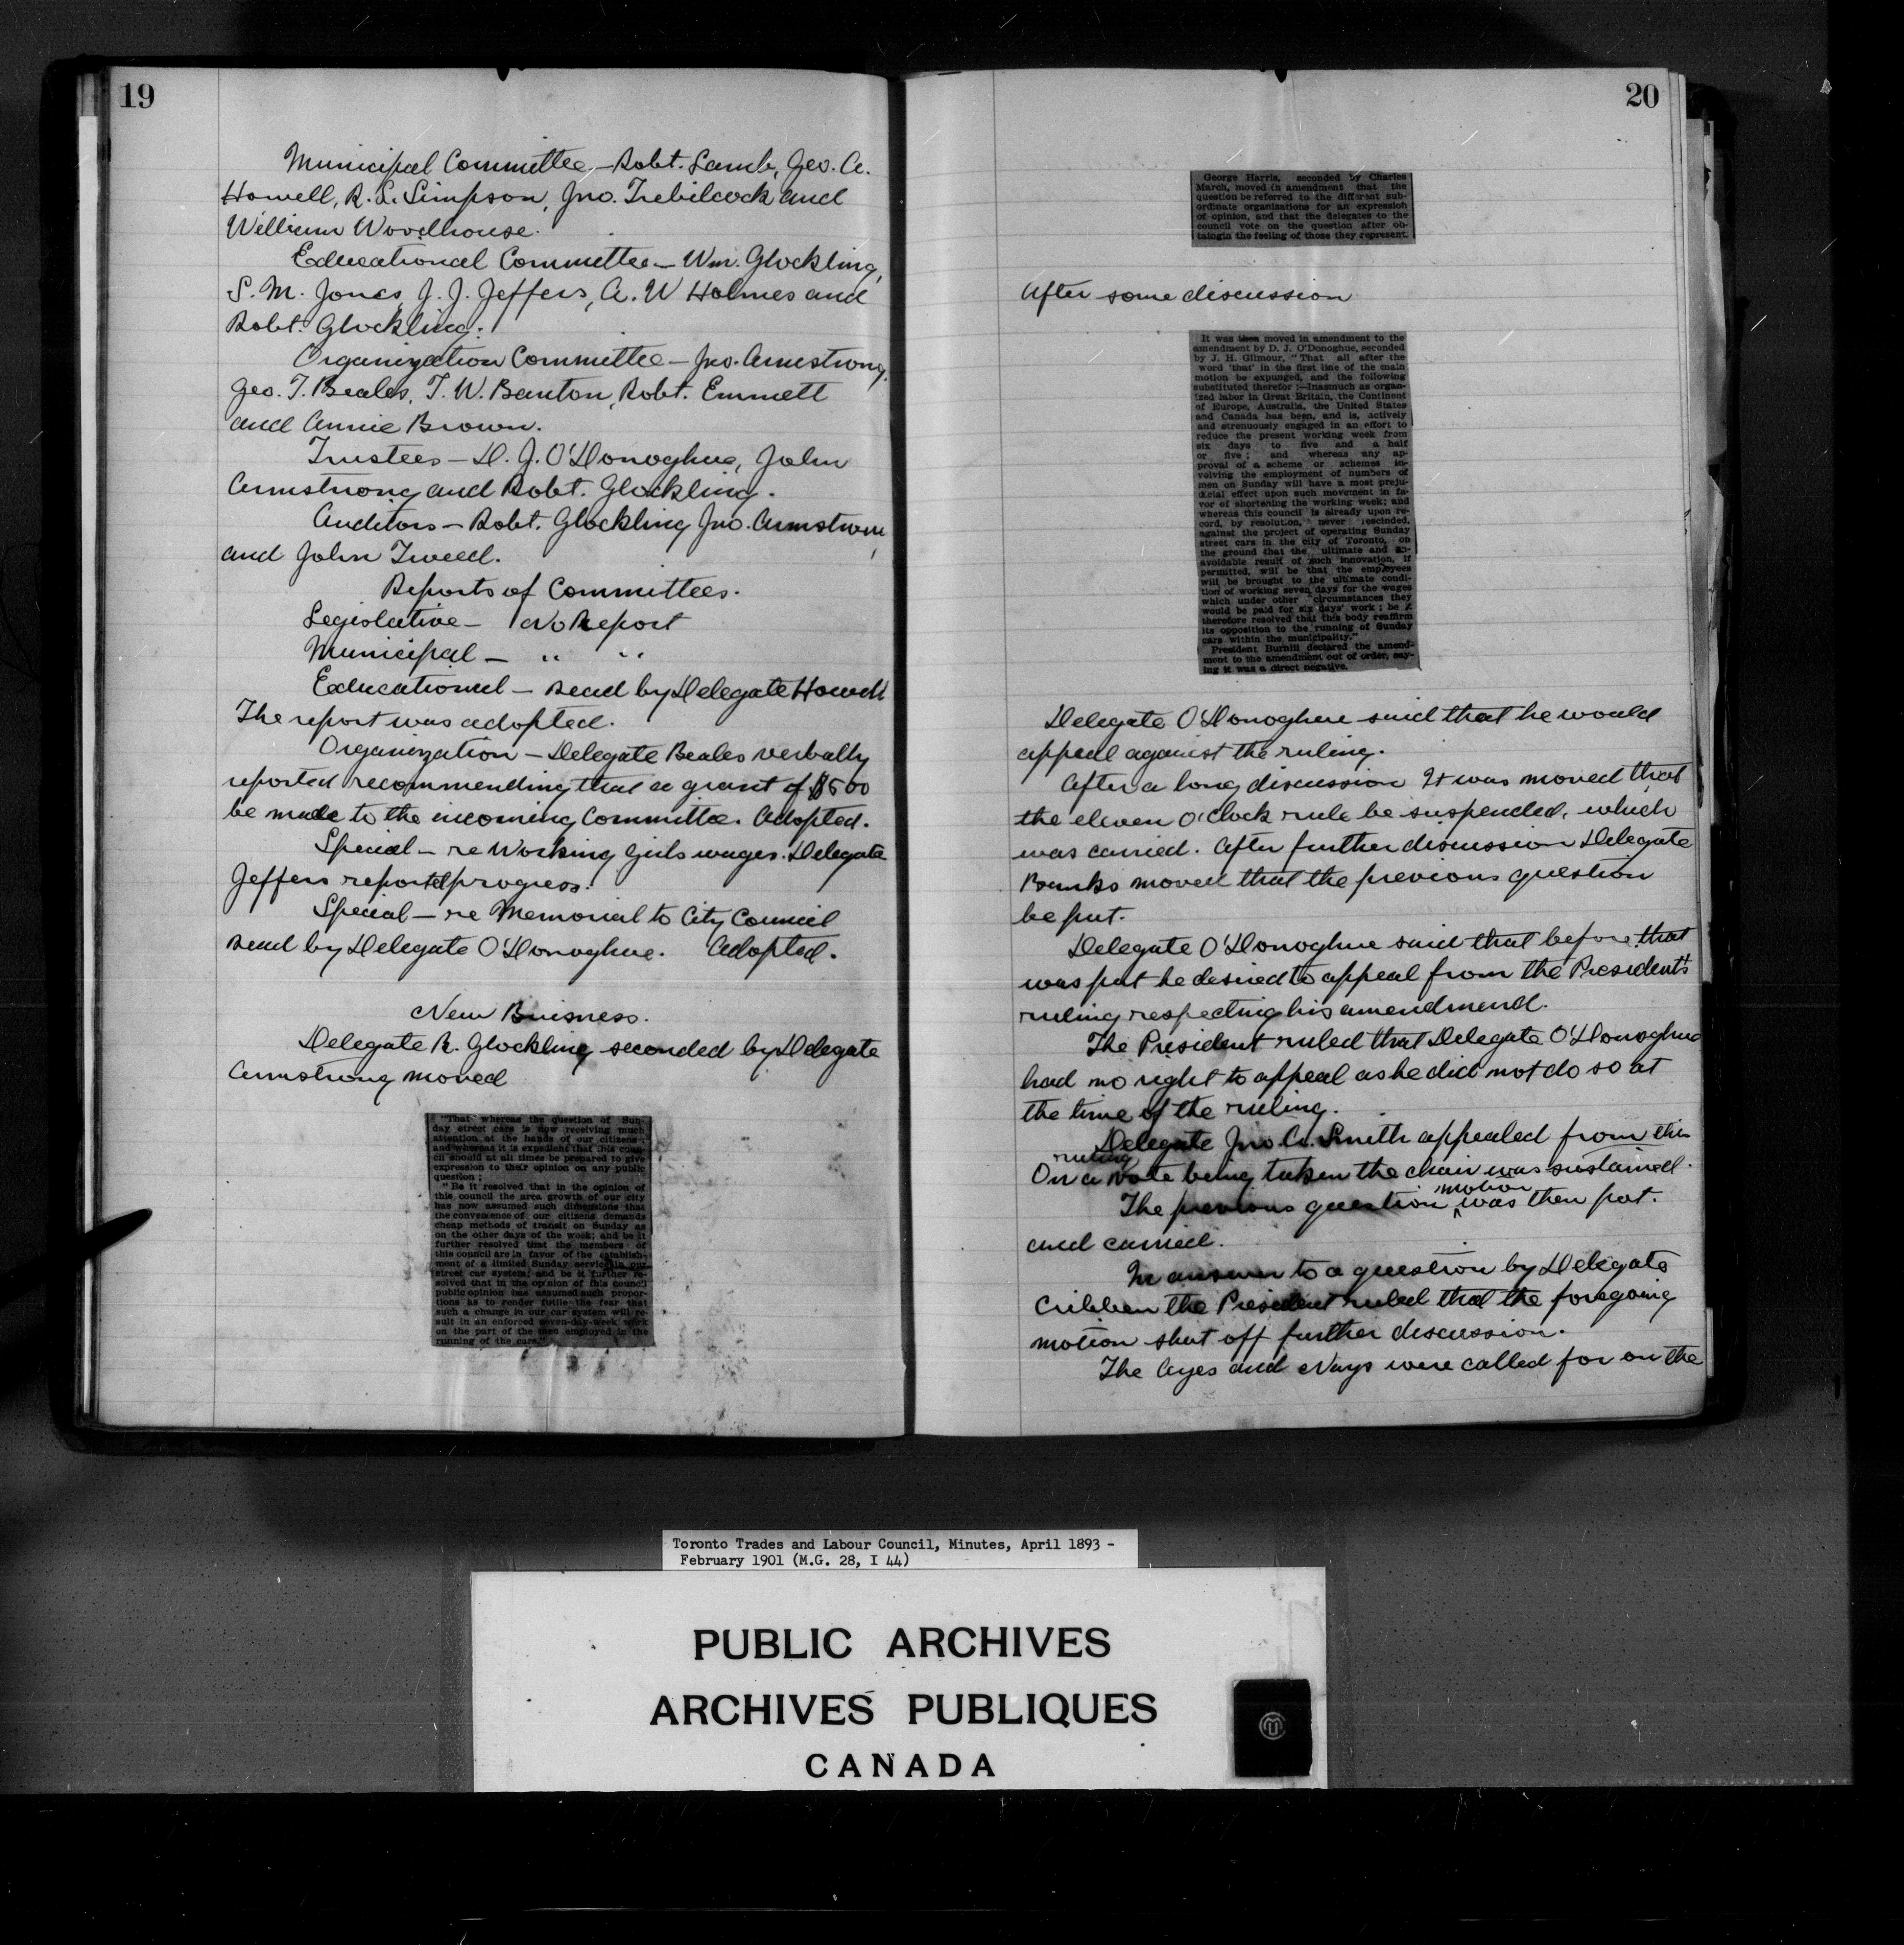 19
Municipal Committee - Robt. Lamb, Geo. A.
Howell, R. L. Simpson, Jno. Trebilcock and
William Woodhouse.
Educational Committee - Wm. Glockling,
S. M. Jones, J. J. Jeffers, A. W Holmes and
Robt. Glockling.
Organization Committee - Jno. Armstrong,
Geo. T. Beales, T. W. Banton, Robt. Emmett
and Annie Brown.
Trustees - D. J. O'Donoghue, John
Armstrong and Robt. Glockling.
Auditors - Robt. Glockling Jno. Armstrong
and John Tweed.
Reports of Committees.
Legislative - No Report
Municipal - " "
Educational - Read by Delegate Howell
The report was adopted.
Organization - Delegate Beales verbally
reported recommending that a grant of $5 00
be made to the incoming Committee. Adopted.
Special - re Working Girls wages. Delegate
Jeffers reported progress.
Special - re Memorial to City Council
Read by Delegate O'Donoghue. Adopted.
New Buisness.
Delegate R. Glockling seconded by Delegate
Armstrong moved
"That whereas the question of Sun-
day street cars is now receiving much
attention at the hands of our citizens;
and whereas it is expedient that this coun-
cil should at all times be prepared to give
expression to their opinion on any public
question;
"Be it resolved that in the opinion of
this council the area growth of our city
has now assumed such dimensions that
the convenience of our citizens demands
cheap methods of transit on Sunday as
on the other days of the week; and be it
further resolved that the members of
this council are in favor of the establish-
ment of a limited Sunday service in our
street car system; and be it further re-
solved that in the opinion of this council
public opinion has assumed such propor-
tions as to render futile the fear that
such a change in our car system will re-
sult in an enforced seven-day-week work
on the part of the men employed in the
running of the cars."
20
George Harris, seconded by Charles
March, moved in amendment that the
question be referred to the different sub-
ordinate organizations for an expression
of opinion, and that the delegates to the
council vote on the question after ob-
taingin the feeling of those they represent.
After some discussion
It was then moved in amendment to the
amendment by D. J. O'Donoghue, seconded
by J. H. Gilmour, "That all after the
word 'that' in the first line of the main
motion be expunged, and the following
substituted therefor:—Inasmuch as organ-
ized labor in Great Britain, the Continent
of Europe, Australia, the United States
and Canada has been, and is, actively
and strenuously engaged in an effort to
reduce the present working week from
six days to five and a half
or five; and whereas any ap-
proval of a scheme or schemes in-
volving the employment of numbers of
men on Sunday will have a most preju-
dicial effect upon such movement in fa-
vor of shortening the working week; and
whereas this council is already upon re-
cord, by resolution, never rescinded,
against the project of operating Sunday
street cars in the city of Toronto, on
the ground that the ultimate and un-
avoidable result of such innovation, if
permitted, will be that the employees
will be brought to the ultimate condi-
tion of working seven days for the wages
which under other circumstances they
would be paid for six days' work; be it
therefore resolved that this body reaffirm
its opposition to the running of Sunday
cars within the municipality."
President Burnill declared the amend-
ment to the amendment out of order, say-
ing it was a direct negative.
Delegate O'Donoghue said that he would
appeal against the ruling.
After a long discussion It was moved that
the eleven O'Clock rule be suspended, which
was carried. After further discussion Delegate
Banks moved that the previous question
be put.
Delegate O'Donoghue said that before that
was put he desired to appeal from the President's
ruling respecting his amendmend.
The President ruled that Delegate O'Donoghue
had no right to appeal as he did not do so at
the time of the ruling.
Delegate Jno. A. Smith appealed from this
ruling
On a vote being taken the chair was sustained.
The previous question motion was then put.
and carried.
In answer to a question by Delegate
Cribben the President ruled that the foregoing
motion shut off further discussion.
The Ayes and Nays were called for on the
Toronto Trades and Labour Council, Minutes, April 1893 -
February 1901 (M.G. 28, I 44)
PUBLIC ARCHIVES
ARCHIVES PUBLIQUES
CANADA